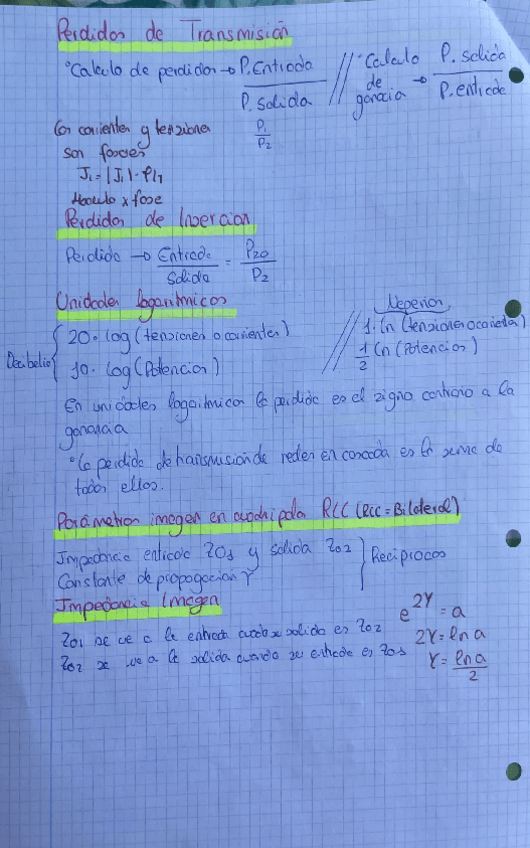 Perdidas de Transmisión
°Calculo de perdidas → P.Entrada / P. salida // °Calculo de ganacia → P. salida / P. entrada
Las corrientes y tensiones P1 / P2
son fasores
J1 = |J1| · φ1
Modulo x fase
Perdidas de Insercion
Perdida → Entrada / Salida = P20 / P2
Unidades logaritmicas
Decibelios { 20 · log (tensiones o corrientes) // Neperios 1 · ln (tensiones o corriente)
10 · log (Potencias) 1/2 ln (Potencias)
En unidades logaritmicas la perdida es el signo contrario a la
ganancia
°La perdida de transmision de redes en cascada es la suma de
todas ellas.
Parámetros imagen en cuadripolo RCC (RCC = Bilateral)
Impedancia entrada Z01 y salida Z02 } Reciprocos
Constante de propagacion γ
Impedancia Imagen
Z01 se ve a la entrada cuando su salida es Z02
Z02 se ve a la salida cuando su entrada es Z01
e^2γ = a
2γ = ln a
γ = ln a / 2